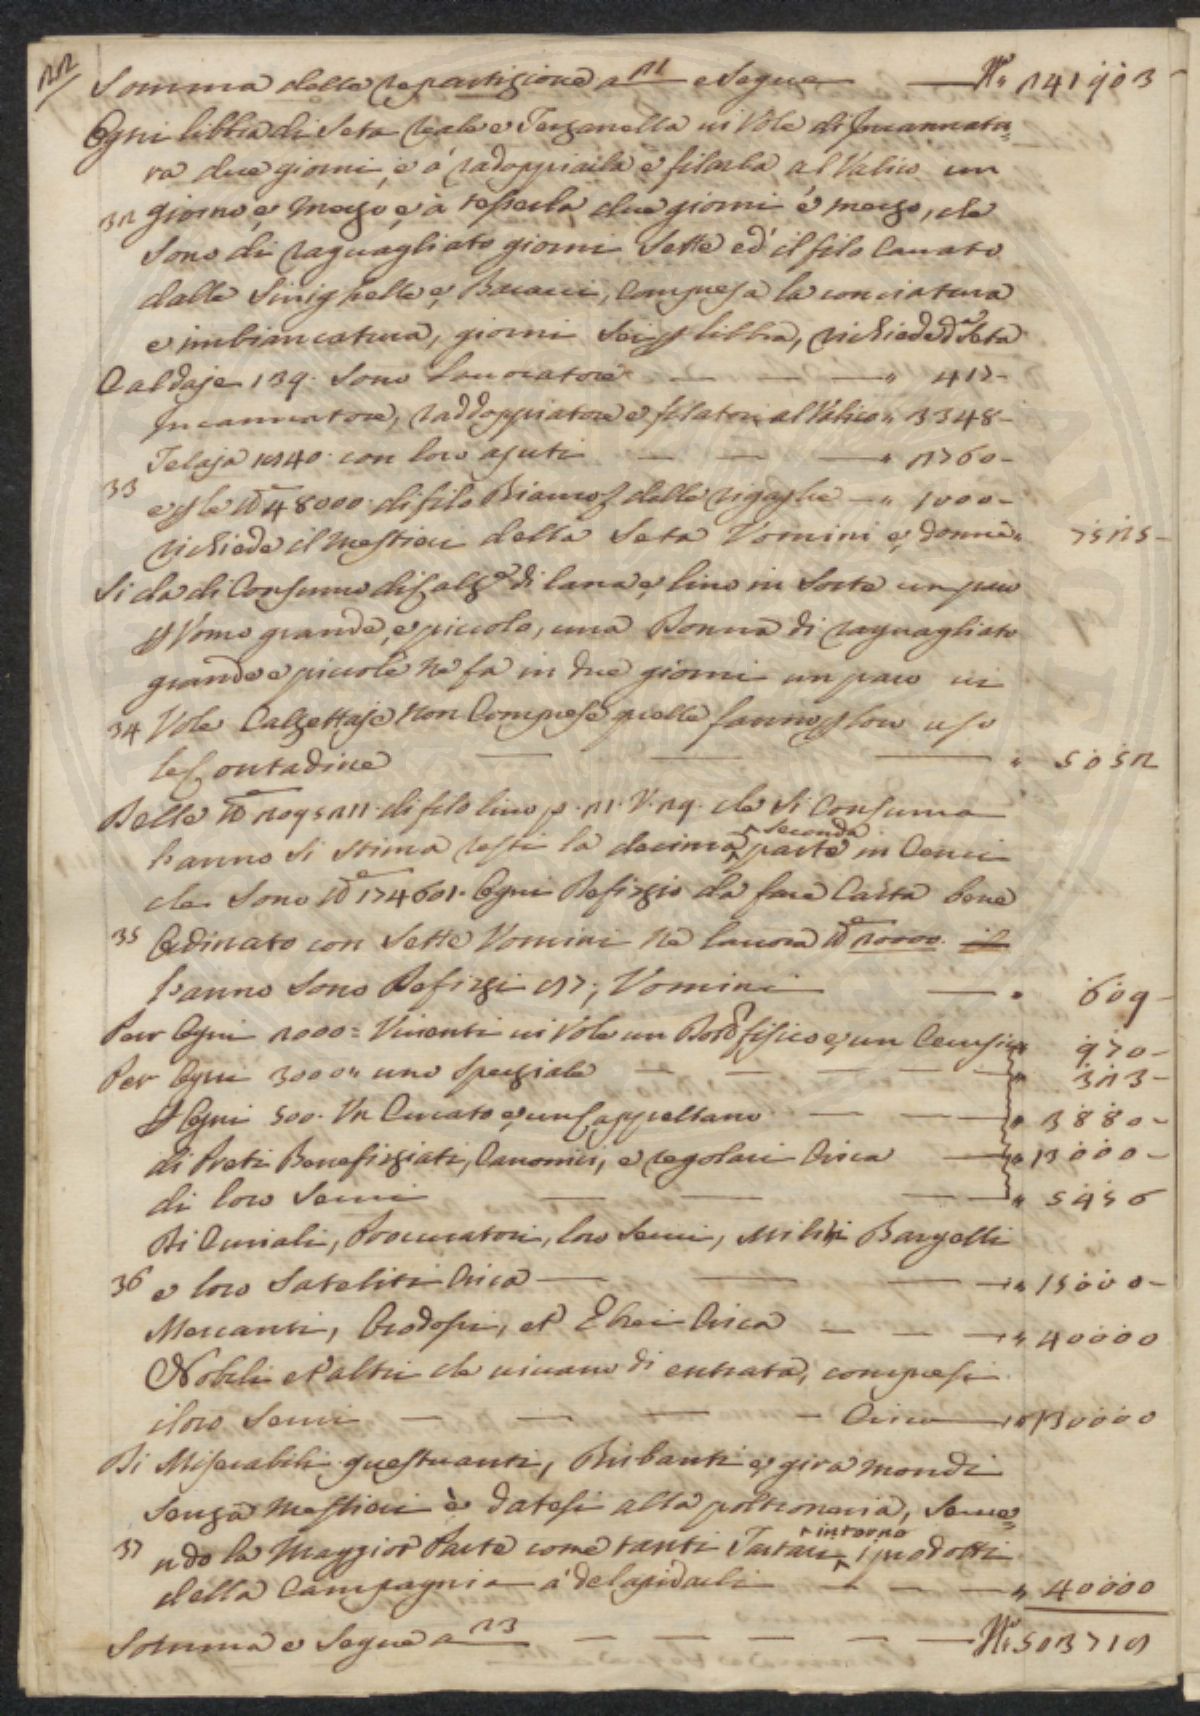 22
Somma della repartizione a 21 e Segue — N.° 241903
Ogni libbra di Seta reale e Terzanella ui Vole di Incannatu=
ra due giorni, e á radoppiarla e filarla al Valico un
32 giorno e mezo e à tesserla due giorni e mezo, che
sono di raguagliato giorni Sette ed' il filo Cauato
dalle Sinighelle e Bacacci, Compresa la conciatura
e imbiancatura, giorni Sei libbra, richiede d.ª Seta
Caldaje 139. Sono Lauoratore — — — " 417-
Incannatore, raddoppiatore e filatori al Valico " 3348-
Telaja 1240. con loro ajuti — — — " 2760-
33 e le 48000. di filo Bianco delle rigaglie — " 1000-
richiede il Mestiere della Seta Vomini e donne " 7525-
Si da di Consumo di Calze di lana e lino in Sorte un paro
Vomo grande, e piccolo, una Donna di raguagliato
grande e piccole ne fa in due giorni un paro ui
34 Vole Calzettaje non Comprese quelle fanno loro uso
le Contadine — — — " 5052
Delle 2095211. di filo lino p. 21. V. 29. che Si Consuma
l'anno Si Stima resti la decima seconda parte in Cenci
che Sono 174601. Ogni Defizio da fare Carta bene
35 Ordinato con Sette Vomini ne lauora 20000. il
l'anno Sono Defizi 87; Vomini — " 609-
Per Ogni 1000= Viuenti ui Vole un Dor. fisico e un Cerusico " 970-
Per Ogni 3000 " uno Speziale — — — — — " 323-
Ogni 500. Un Curato e un Cappellano — — " 3880-
di Preti Benefiziati, Canonici, e regolari Circa — " 13000-
di loro Serui — — — " 5456
Di Curiali, Procuratori, loro Serui, Militi Bargelli
36 e loro Sateliti Circa — — — " 15000-
Mercanti, et Ebrei Circa — — — " 40000
Nobili et altri che uiuano di entrata, compresi
i loro Serui — — — — Circa — " 130000
Di Miserabili questuanti, Birbanti e gira mondi
senza Mestieri è datesi alla poltroneria, Serue=
37 ndo la Maggior Parte come tanti Tartari intorno i prodotti
della Campagnia á delapidarli — — — " 40000
Somma e Segue a 23 — — — — — N.° 503718